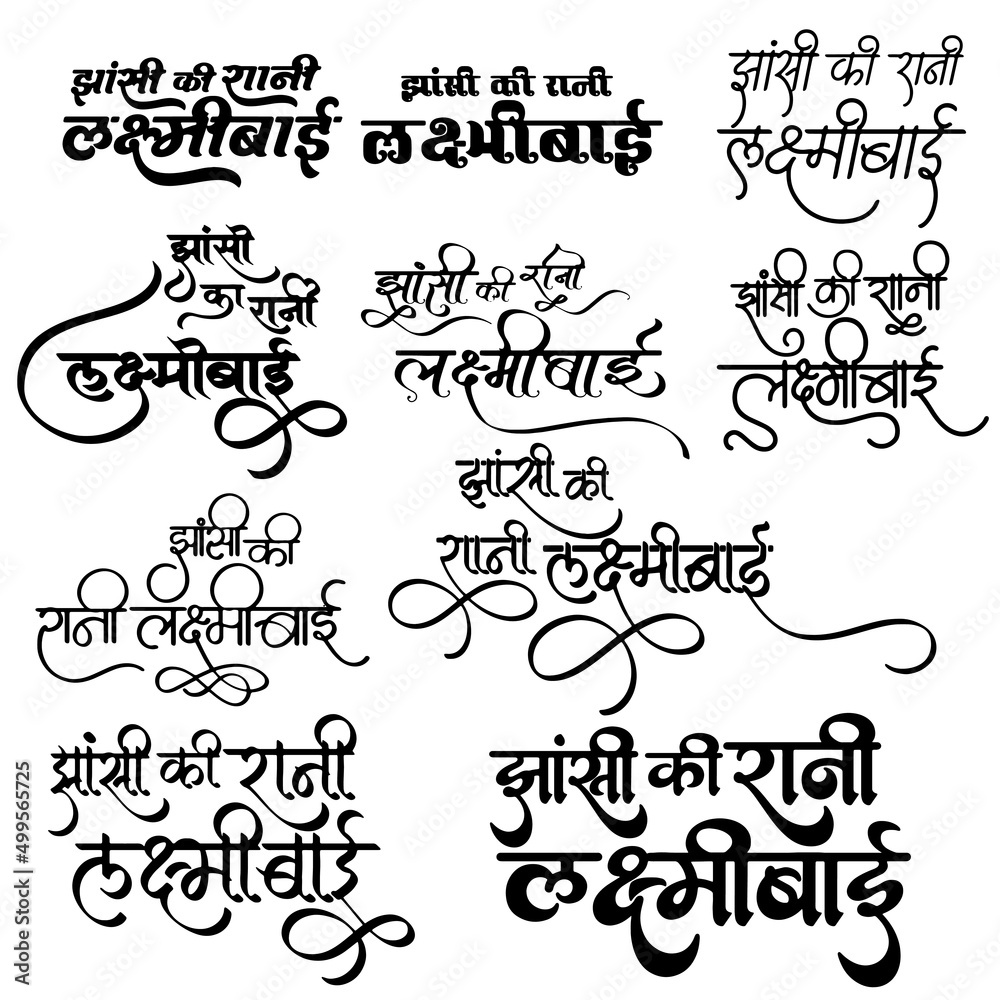 झांसी की रानी
लक्ष्मीबाई
झांसी की रानी
लक्ष्मीबाई
झांसी की रानी
लक्ष्मीबाई
झांसी
की
रानी
लक्ष्मीबाई
झांसी की रानी
लक्ष्मीबाई
झांसी की रानी
लक्ष्मीबाई
झांसी की
रानी लक्ष्मीबाई
झांसी की
रानी लक्ष्मीबाई
झांसी की रानी
लक्ष्मीबाई
झांसी की रानी
लक्ष्मीबाई
Adobe Stock | #499565725